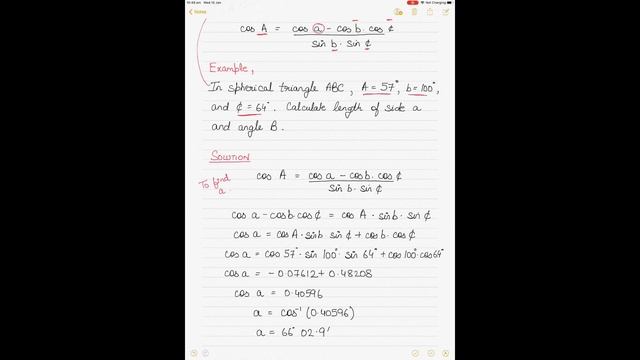 10:49 am Wed 13 Jan
Not Charging
Notes
cos A = cos a - cos b · cos ¢
sin b · sin ¢
Example,
In spherical triangle ABC, A = 57°, b = 100°,
and ¢ = 64°. Calculate length of side a
and angle B.
SOLUTION
To find a
cos A = cos a - cos b · cos ¢
sin b · sin ¢
cos a - cos b · cos ¢ = cos A · sin b · sin ¢
cos a = cos A · sin b · sin ¢ + cos b · cos ¢
cos a = cos 57° · sin 100° · sin 64° + cos 100° · cos 64°
cos a = - 0.07612 + 0.48208
cos a = 0.40596
a = cos⁻¹ (0.40596)
a = 66° 02.9'